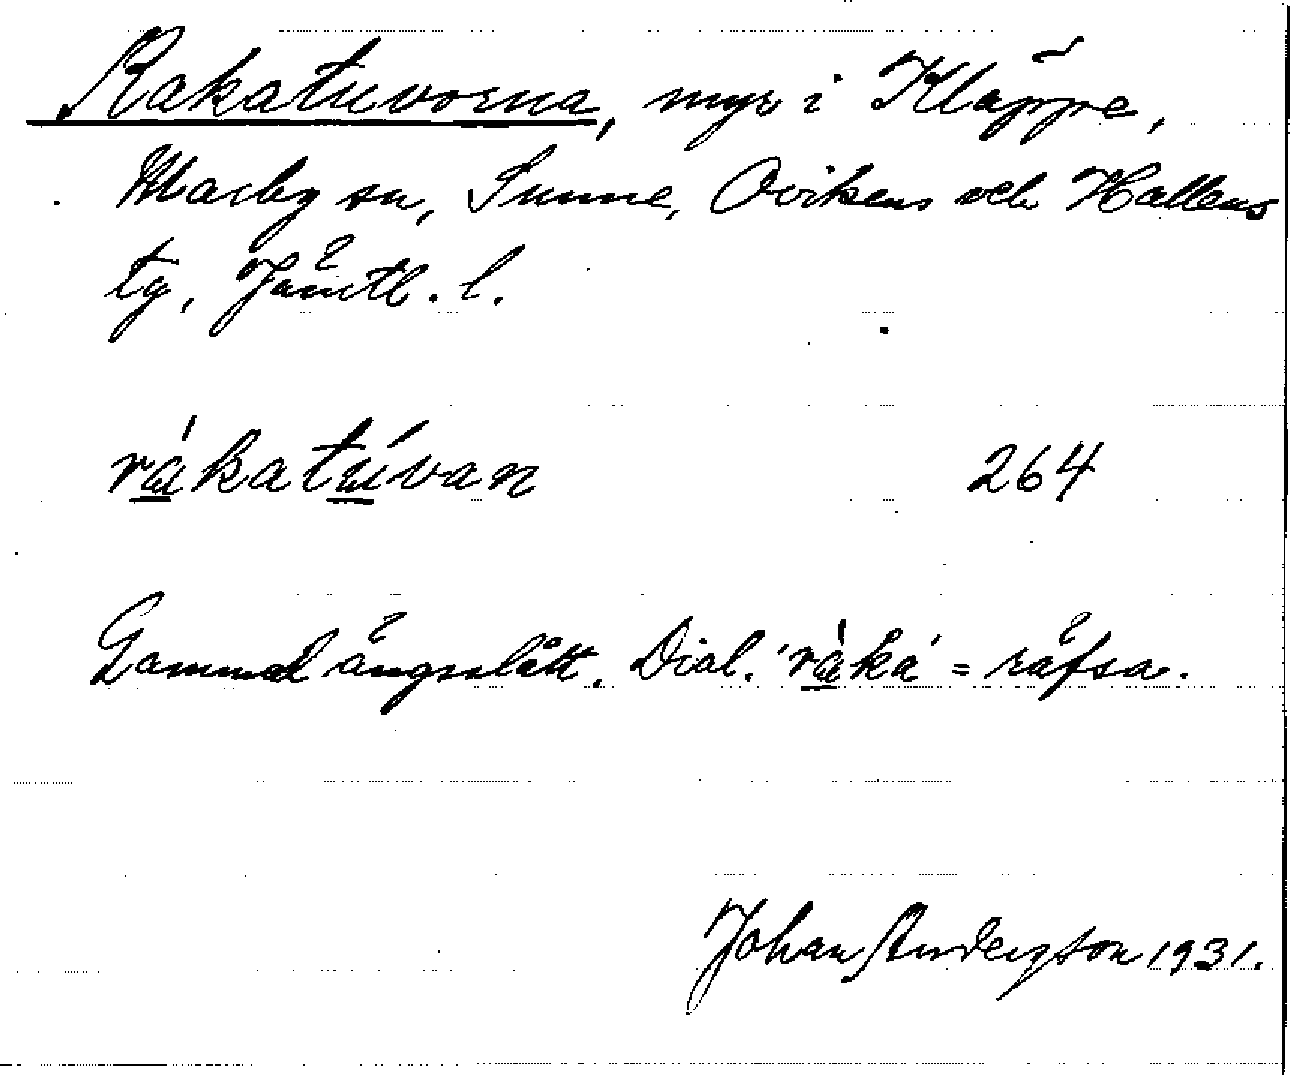 Rakatuvorna, myr i Kläppe,
Marby sn, Sunne, Ovikens och Hallens
tg, Jämtl. l.
rákatúvan 264
Gammal ängsslått. Dial. 'ráka' = räfsa.
Johan Anderzson 1931.